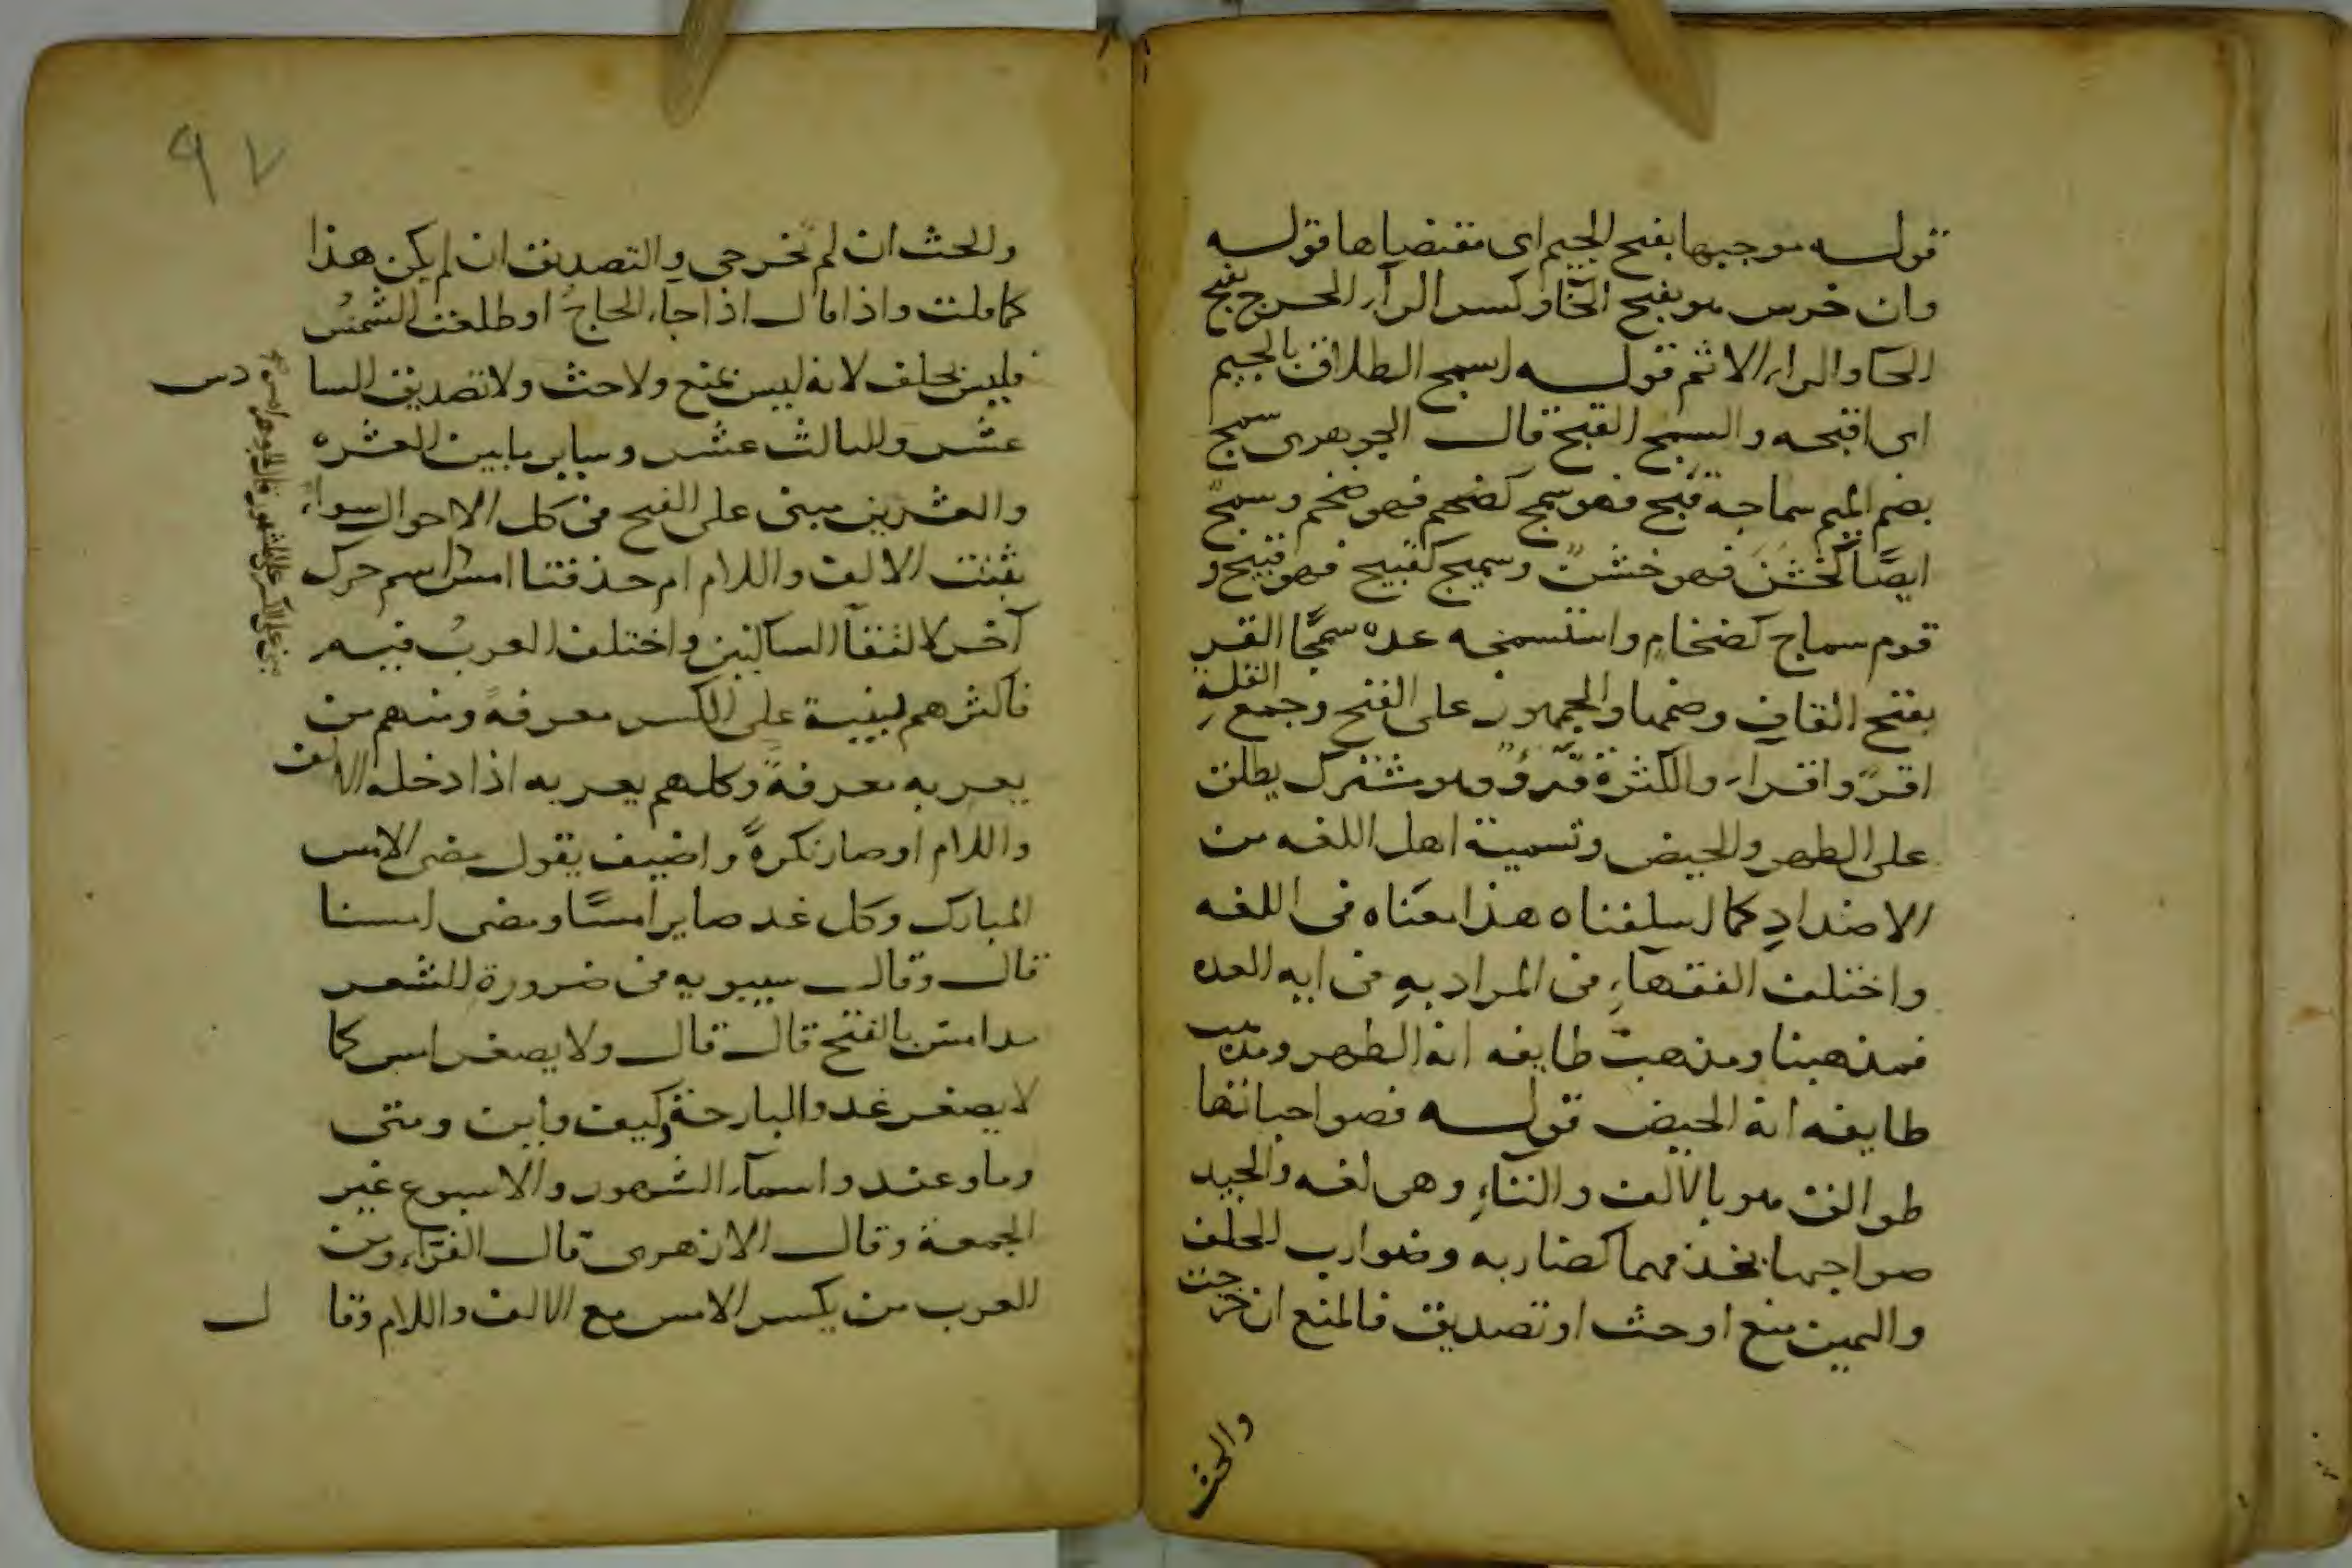 قوله موجبها بفتح الجيم اى مقتضياها قوله
وان خرس هو بفتح الخا وكسر الرآء الحرج بفتح
الحا والراء الاثم قوله اسمج الطلاق بالجيم
اى اقبحه والسمج القبح قال الجوهرى سمج
بضم الميم سماجة قبح فهو سمج كضخم فهو ضخم وسمج
ايضًا كخشن فهو خشن وسميج كقبيح فهو قبيح و
قوم سماج كضخام واستسمجه عده سمجًا القر
بفتح القاف وضمها والجمهور على الفتح وجمع القلة
اقرؤ واقراء والكثرة قرؤ وهو مشترك يطلق
على الطهر والحيض وتسمية اهل اللغه من
الاضداد كما اسلفناه هذا معناه فى اللغه
واختلف الفقهاء فى المراد به فى ايه العده
فمذهبنا ومذهب طايفه انه الطهر ومذهب
طايفه انه الحيض قوله فصواحباتها
طوالق هو بالالف والتاء وهى لغه والجيد
صواحبها بحذفهما كضاربه وضوارب الحلف
واليمين منع او حث او تصديق فالمنع ان خرجت
والحث
٩٧
والحث ان لم تخرجى والتصديق ان لم يكن هذا
كما قلت واذا قال اذا جاء الحاج او طلعت الشمس
فليس بحلف لانه ليس بمنع ولا حث ولا تصديق السا دس
عشر والثالث عشر وساير ما بين العشره
والعشرين مبنى على الفتح فى كل الاحوال سواء
بقيت الالف واللام ام حذفتا امس اسم حرك
آخره لالتقآ الساكنين واختلف العرب فيه
فاكثرهم يبنيه على الكسر معرفةً ومنهم من
يعربه معرفةً وكلهم يعربه اذا دخله الالف
واللام او صار نكرةً واضيف يقول مضى الامس
المبارك وكل غد صاير امسًا ومضى امسنا
قال وقال سيبويه فى ضرورة الشعر
مذ امس بالفتح قال قال ولا يصغر امس كما
لا يصغر غد والبارحة وكيف واين ومتى
وما وعند واسمآء الشهور والاسبوع غير
الجمعة وقال الازهرى قال الفرّاء ومن
العرب من يكسر الامس مع الالف واللام وقا ل